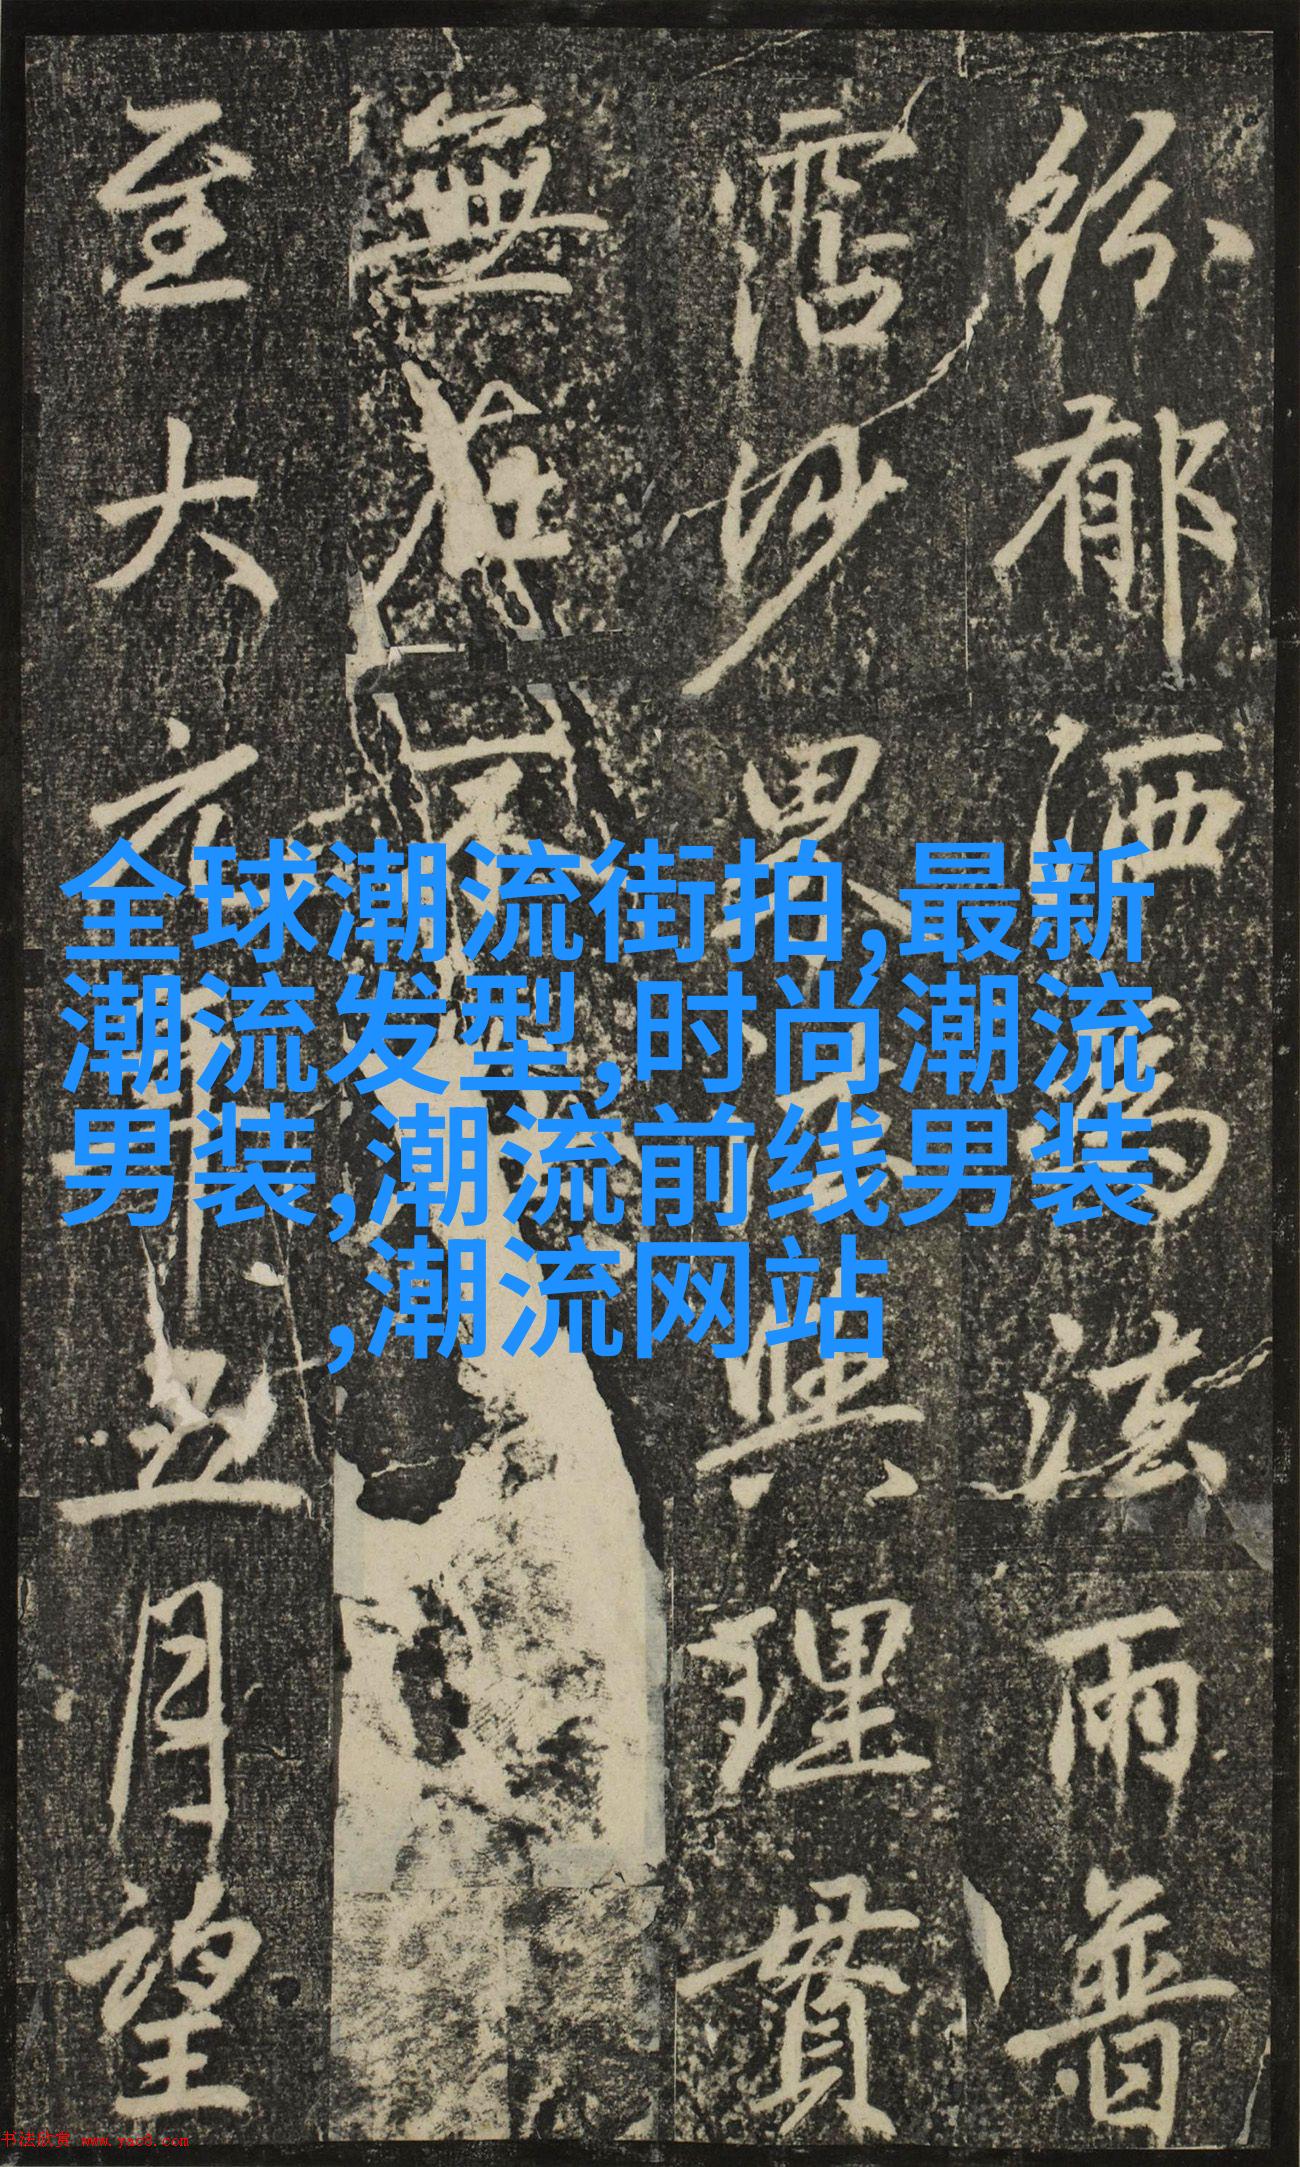 紛郁洒爲法雨普
霑沙界與理貫
無在不
至大年五月望
全球潮流街拍,最新
潮流发型,时尚潮流
男装,潮流前线男装
,潮流网站
书法欣赏 www.yac8.com